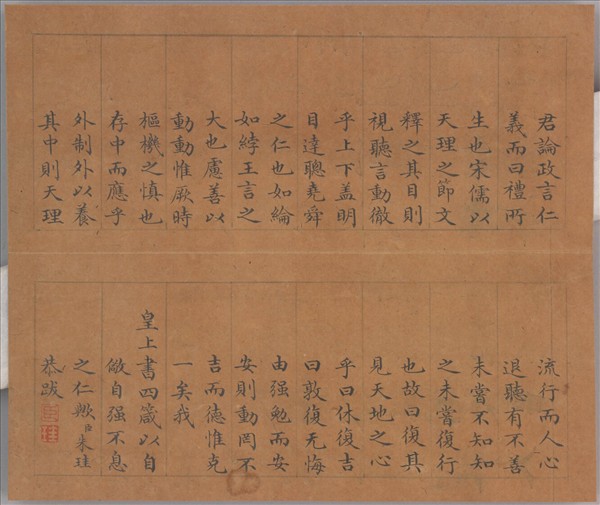 君論政言仁
義而曰禮所
生也宋儒以
天理之節文
釋之其目則
視聽言動徹
乎上下盖明
目達聰堯舜
之仁也如綸
如綍王言之
大也慮善以
動動惟厥時
樞機之慎也
存中而應乎
外制外以養
其中則天理
流行而人心
退聽有不善
未嘗不知知
之未嘗復行
也故曰復其
見天地之心
乎曰休復吉
曰敦復无悔
由强勉而安
安則動罔不
吉而德惟克
一矣我
皇上書四箴以自
儆自强不息
之仁歟臣朱珪
恭跋